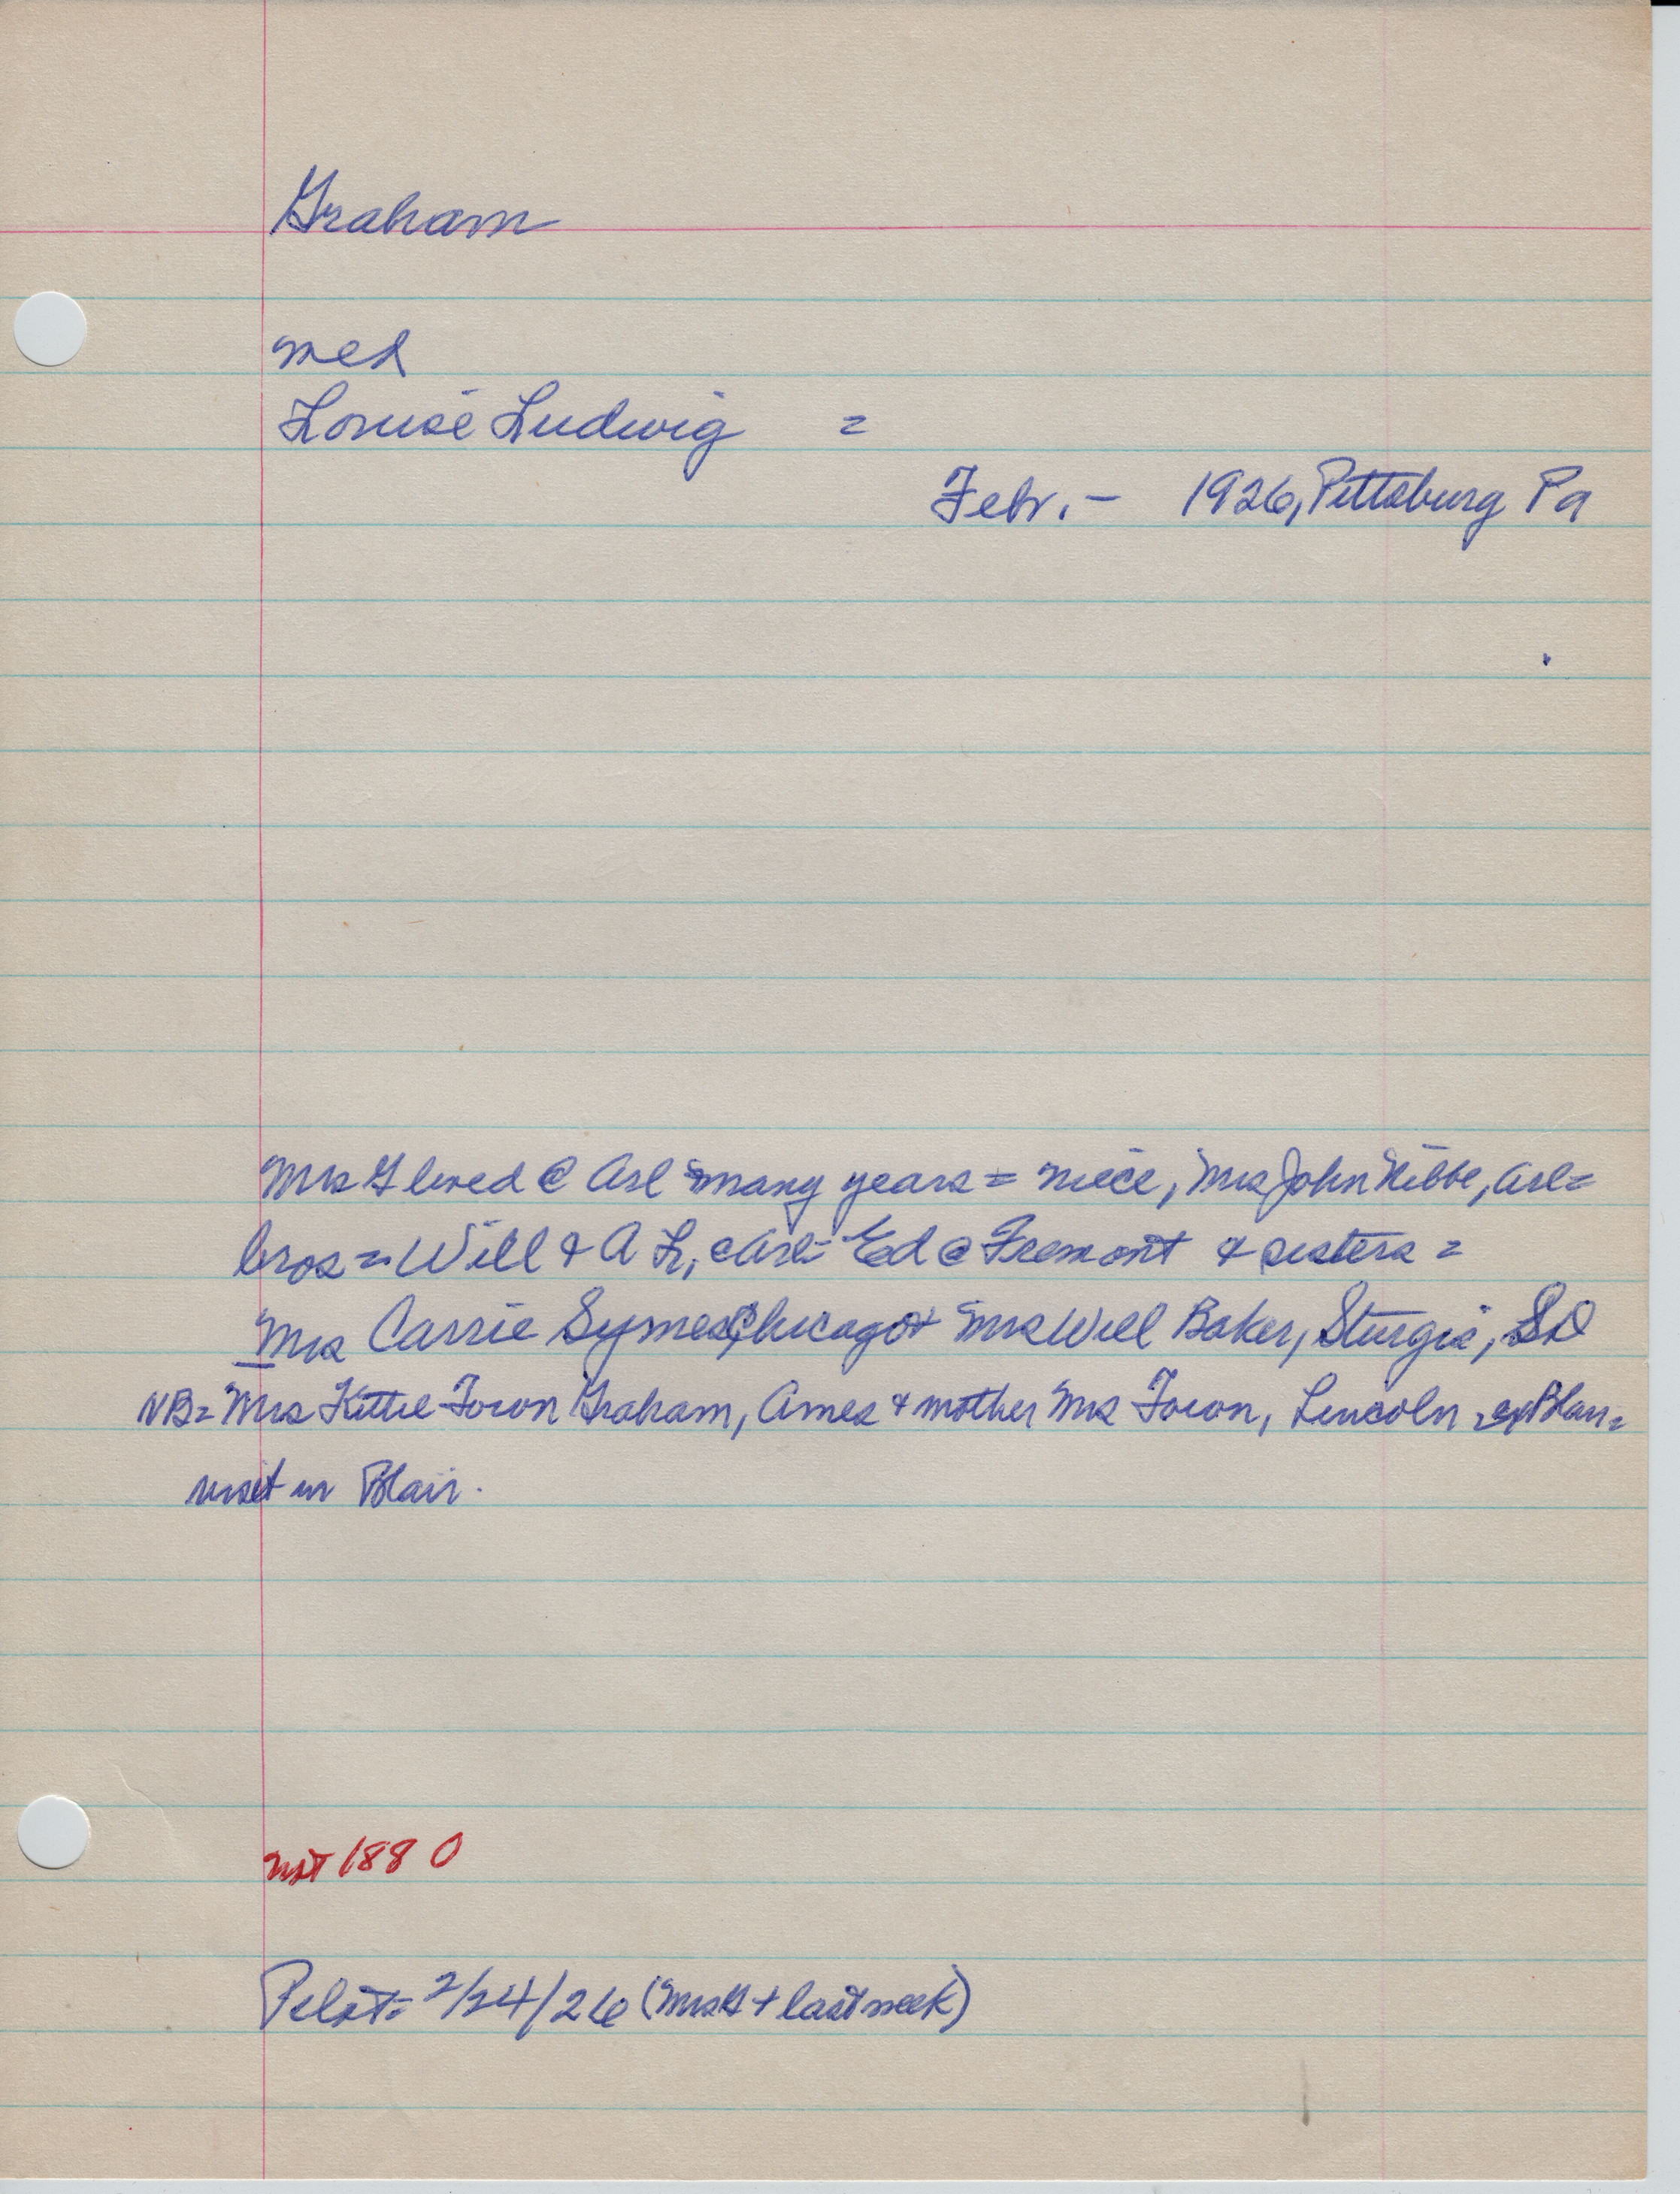 Graham
med
Louise Ludwig =
Febr. - 1926, Pittsburg Pa
Mrs G lived @ Arl many years = niece, Mrs John Kibbe, Arl =
bros = Will & A L, Arl = Ed @ Fremont & sisters =
Mrs Carrie Symes, Chicago & Mrs Will Baker, Sturgis, SD
NB = Mrs Kittie Fown Graham, Ames & mother Mrs Fown, Lincoln =
visit in Blair.
not 1880
Pilot = 2/24/26 (Mrs G + last week)